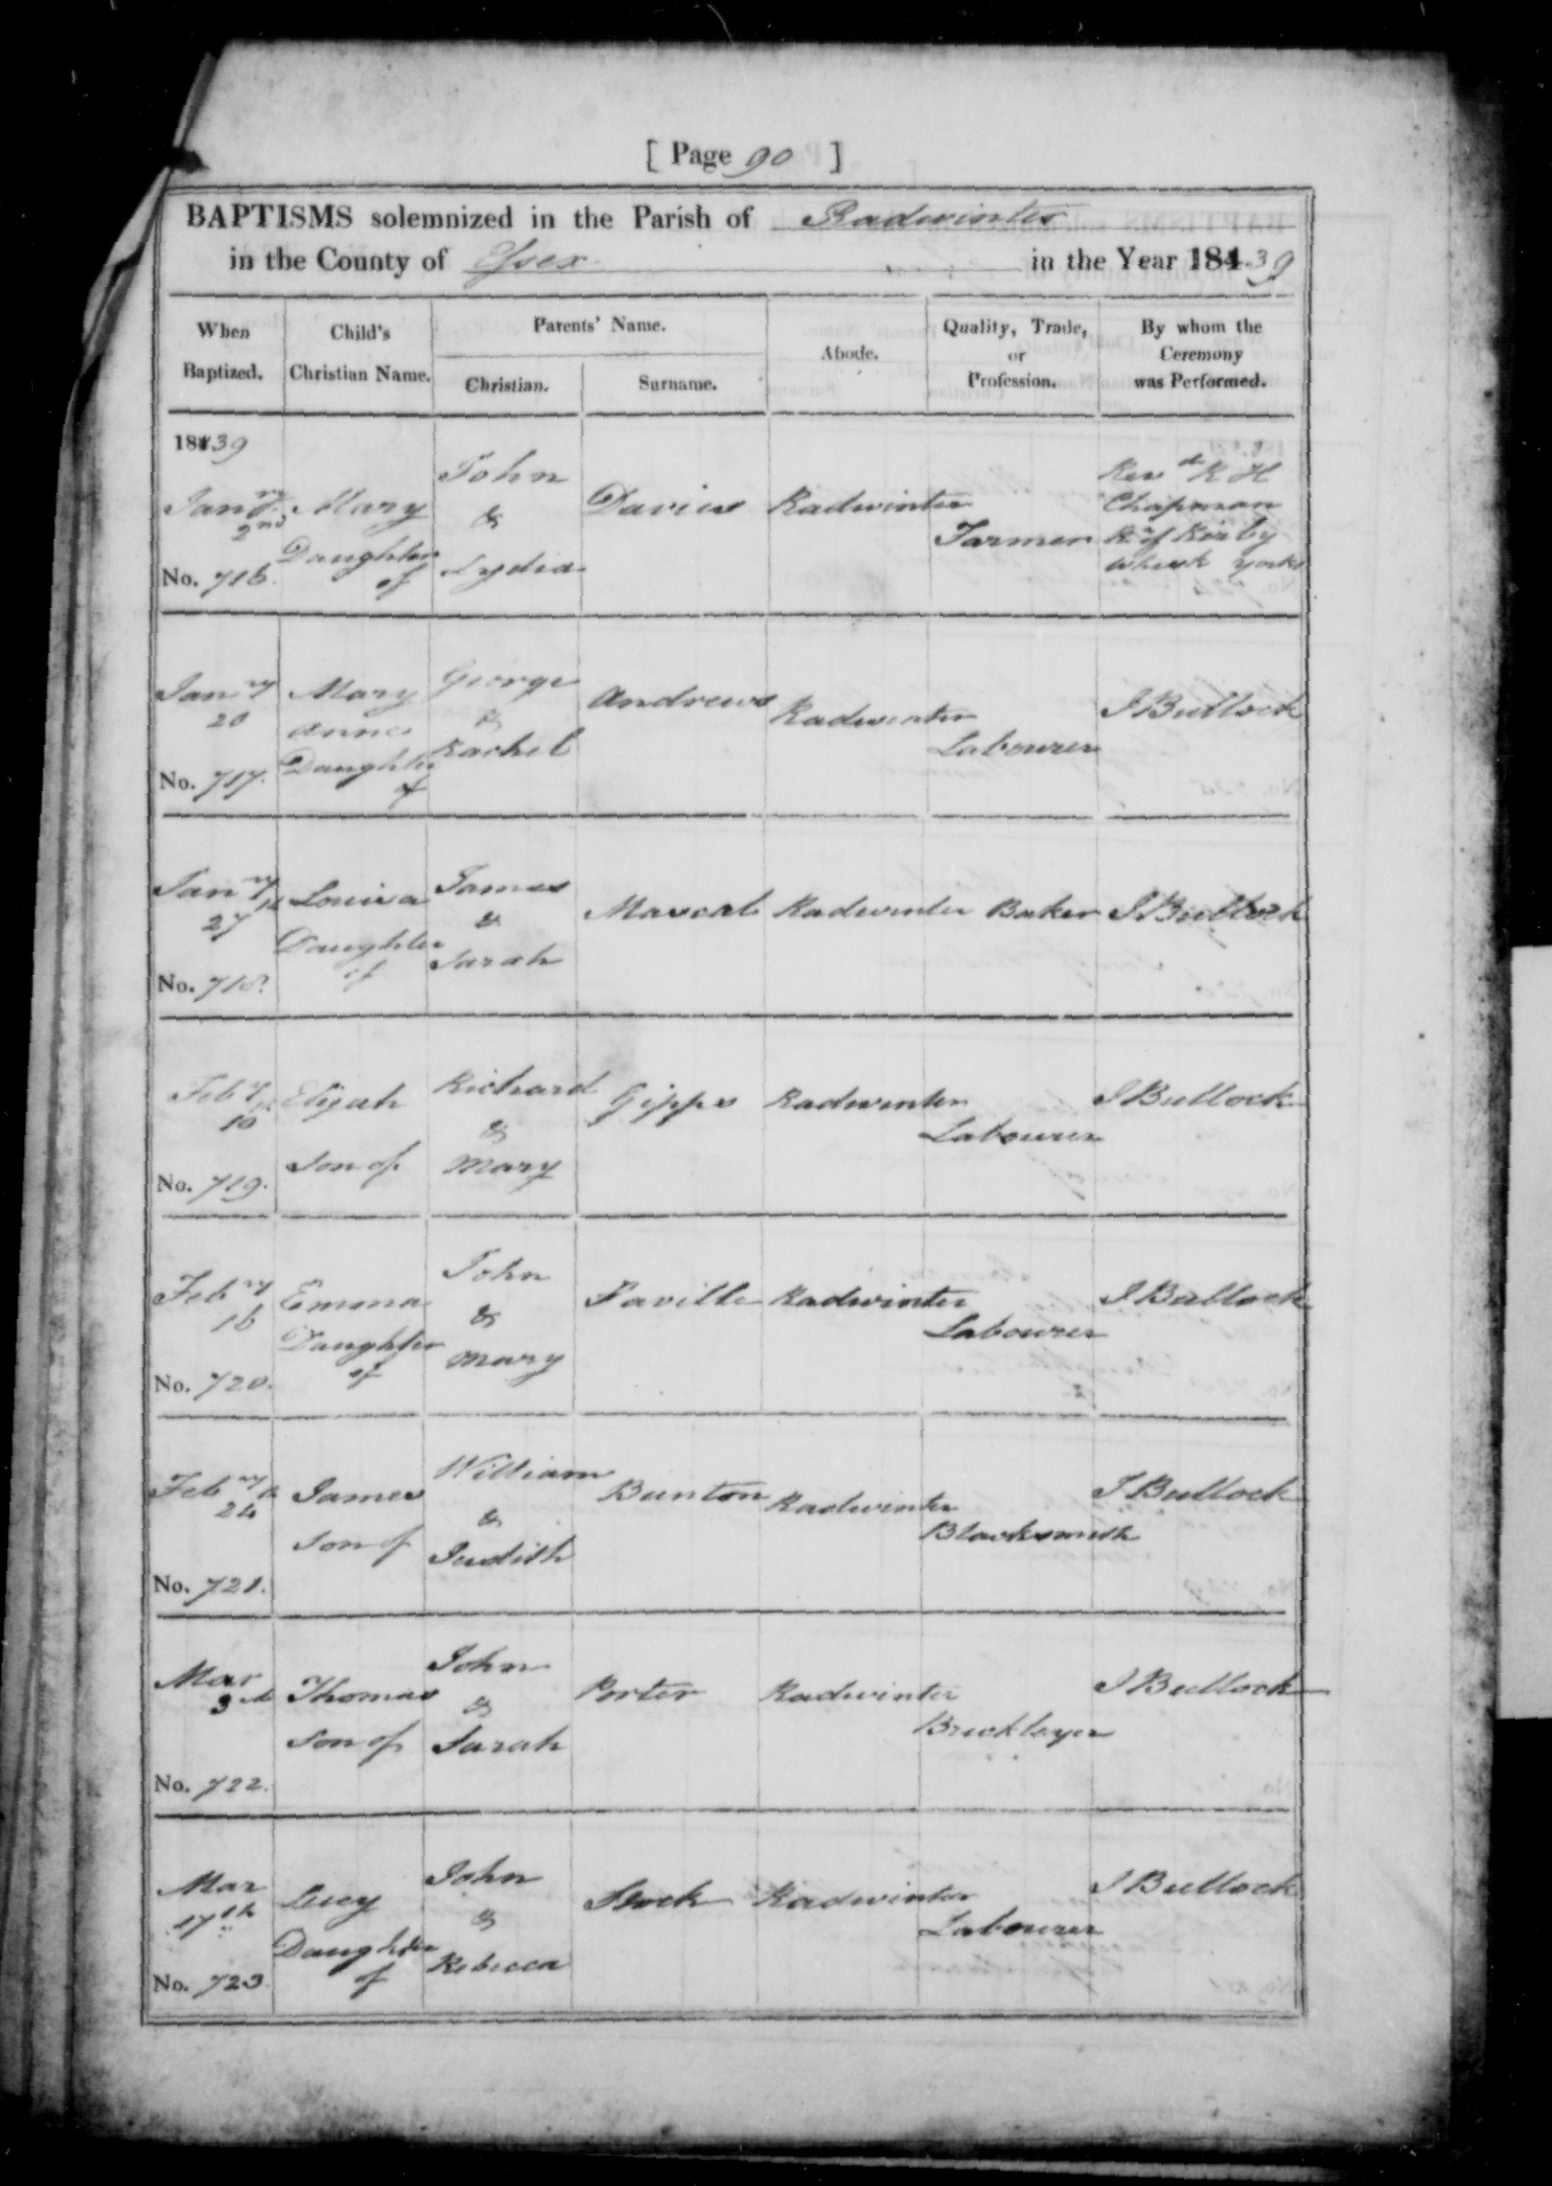 [ Page 90 ]
BAPTISMS solemnized in the Parish of Radwinter
in the County of Essex in the Year 184 39
When Baptized.
Child's Christian Name.
Parents' Name.
Christian.
Surname.
Abode.
Quality, Trade, or Profession.
By whom the Ceremony was Performed.
18439
Jany 2nd
No. 716.
Mary
Daughter
of
John
&
Lydia
Davies
Radwinter
Farmer
Revd R H
Chapman
Rr of Kirby
Whisk Yorks
Janry
20
No. 717.
Mary
Anne
Daughter
of
George
&
Rachel
Andrews
Radwinter
Labourer
J Bullock
Janry
27th
No. 718.
Louisa
Daughter
of
James
&
Sarah
Mascal
Radwinter
Baker
J Bullock
Feby
10th
No. 719.
Elijah
Son of
Richard
&
Mary
Gipps
Radwinter
Labourer
J Bullock
Febry
16
No. 720.
Emma
Daughter
of
John
&
Mary
Saville
Radwinter
Labourer
J Bullock
Febry
24th
No. 721.
James
Son of
William
&
Judith
Bunton
Radwinter
Blacksmith
J Bullock
Mar
3d
No. 722.
Thomas
Son of
John
&
Sarah
Porter
Radwinter
Bricklayer
J Bullock
Mar
17th
No. 723
Lucy
Daughter
of
John
&
Rebecca
Stock
Radwinter
Labourer
J Bullock